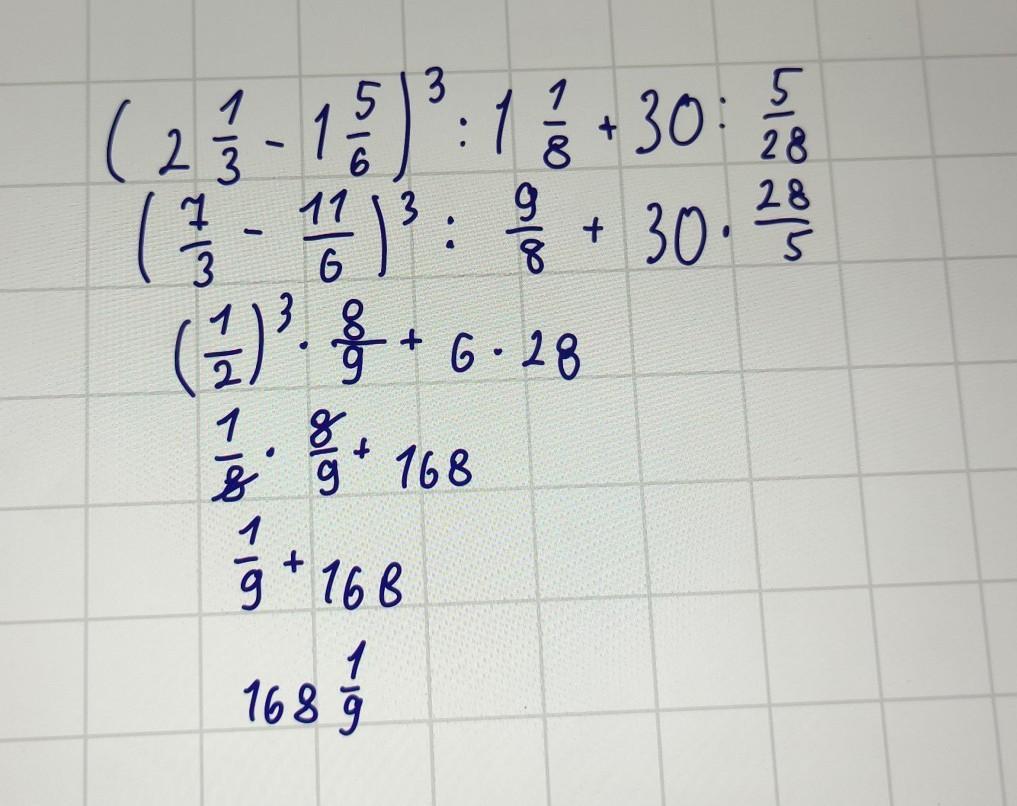 (2 1/3 - 1 5/6)³ : 1 1/8 + 30 : 5/28
(7/3 - 11/6)³ : 9/8 + 30 · 28/5
(1/2)³ · 8/9 + 6 · 28
1/8 · 8/9 + 168
1/9 + 168
168 1/9